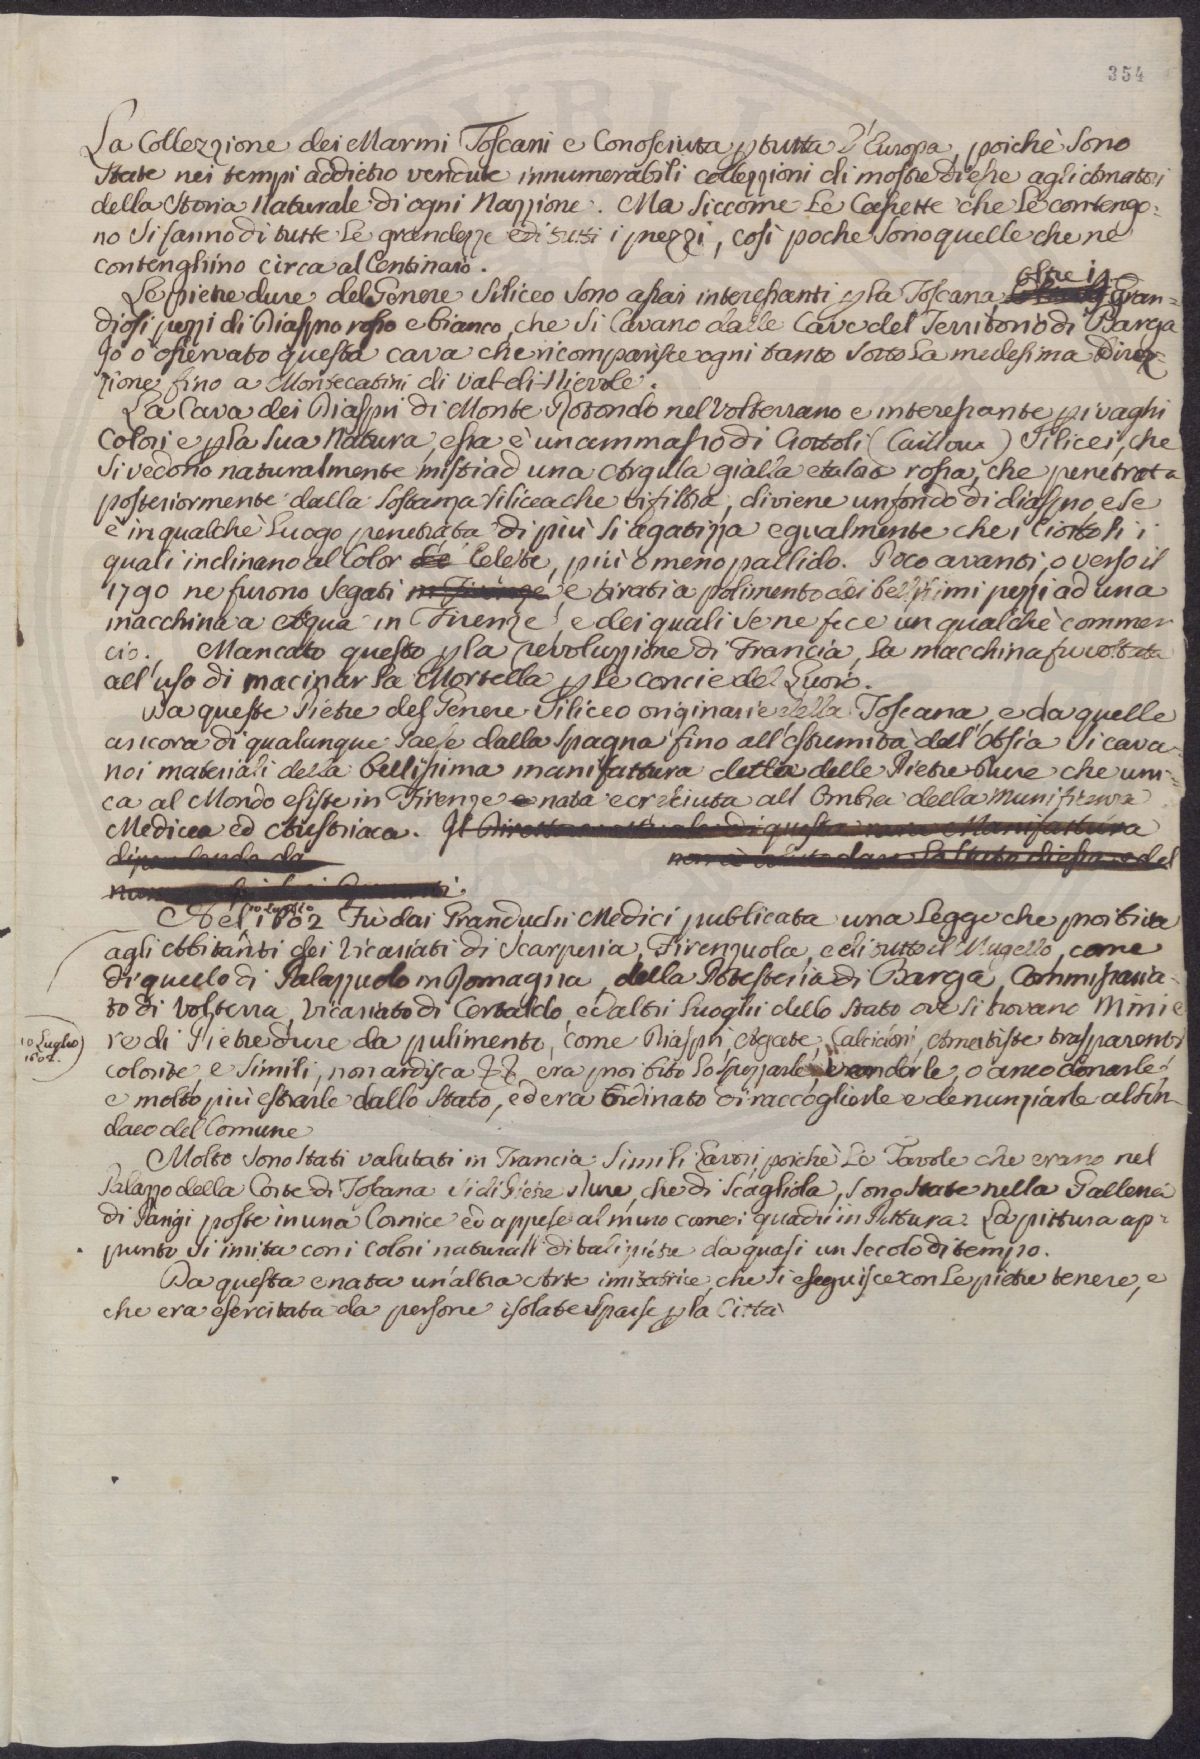 354
La Collezzione dei Marmi Toscani e Conosciuta p tutta l'Europa, poichè sono
state nei tempi addietro vendute innumerabili collezzioni di mostre di esse agli Amatori
della Storia Naturale di ogni Nazzione. Ma siccome le Casette che le contengo=
no si fanno di tutte le grandezze e di tutti i prezzi, così poche sono quelle che ne
contenghino circa al Centinaio.
Le pietre dure del Genere Siliceo sono assai interessanti p la Toscana oltre i Gran=
diosi pezzi di Diaspro rosso e bianco, che si Cavano dalle Cave del Territorio di Barga
Io ò osservato questa cava che ricomparisce ogni tanto sotto la medesima direz=
zione fino a Montecatini di Val-di-Nievole.
La Cava dei Diaspri di Monte Rotondo nel Volterrano e interessante p i vaghi
Colori e p la sua Natura, essa è un ammasso di Ciottoli (Cailloux) Silicei, che
si vedono naturalmente misti ad una Argilla gialla e talora rossa, che penetrata
posteriormente dalla sostanza silicea che vi filtra, diviene un fondo di diaspro, e se
è in qualche luogo penetrata di più si agatizza egualmente che i Ciottoli i
quali inclinano al Color Celeste, più o meno pallido. Poco avanti, o verso il
1790 ne furono segati in Firenze, e tirati a polimento dei bellissimi pezzi ad una
macchina a Aqua in Firenze, e dei quali se ne fece un qualchè commer
cio. Mancato questo p la revoluzzione di Francia, la macchina fu voltata
all'uso di macinar la Mortella p le concie del Cuoio.
Da queste Pietre del Genere Siliceo originarie della Toscana, e da quelle
ancora di qualunque Paese dalla Spagna fino all'estremità dell'Asia si cava=
no i materiali della bellissima manifattura detta delle Pietre Dure che uni=
ca al Mondo esiste in Firenze nata e cresciuta all Ombra della Munificenza
Medicea ed Austriaca. Il Direttore attuale di questa rara Manifattura
dipendendo da
Nel 10 Luglio 1602 Fù dai Granduchi Medici publicata una Legge che proibiva
agli Abitanti dei Vicariati di Scarperia, Firenzuola, e di tutto il Mugello, come
di quello di Palazzuolo in Romagna, della Potesteria di Barga, Commissaria=
to di Volterra, Vicariato di Certaldo, ed altri Luoghi dello Stato ove si trovano Minie
10 Luglio
1602.
re di Pietre dure da pulimento, come Diaspri, Agate, Calcidoni, Amatiste trasparenti
colorite, e simili, non ardisca era proibito lo spezzarle, venderle, o anco donarle
e molto più estrarle dallo Stato, ed era Ordinato di raccoglierle e denunziarle al Sin=
daco del Comune
Molto sono stati valutati in Francia simili Lavori, poichè le Tavole che erano nel
Palazzo della Corte di Toscana si di Pietre dure, che di Scagliola, sono state nella Galleria
di Parigi poste in una Cornice ed appese al muro come i quadri in Pittura. La pittura ap=
punto si imita con i Colori naturali di tali pietre da quasi un secolo di tempo.
Da questa e nata un'altra Arte imitatrice, che si eseguisce con le pietre tenere, e
che era esercitata da persone isolate sparse p la Città